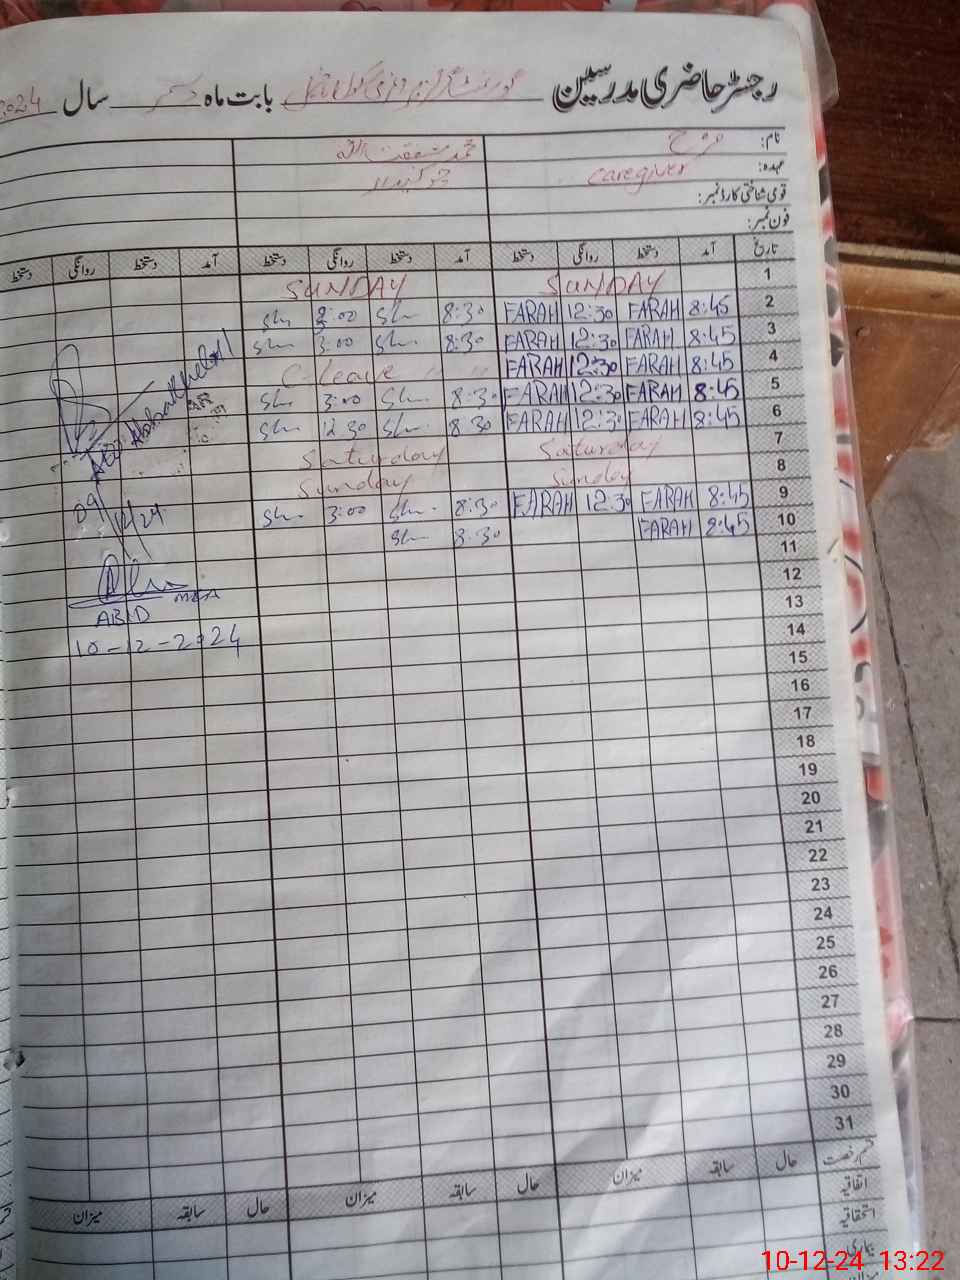 رجسٹر حاضری مدرسین گورنمنٹ گرلز بابت ماہ دسمبر سال 2024
نام: فرح محمد شفقت اللہ
عہدہ: caregiver چوکیدار
قومی شناختی کارڈ نمبر:
فون نمبر:
تاریخ آمد دستخط روانگی دستخط آمد دستخط روانگی دستخط آمد دستخط روانگی دستخط
1 SUNDAY SUNDAY
2 8:45 FARAH 12:30 FARAH 8:30 Sh 3:00 Sh
3 8:45 FARAH 12:30 FARAH 8:30 Sh 3:00 Sh
4 8:45 FARAH 12:30 FARAH C-Leave
5 8:45 FARAH 12:30 FARAH 8:30 Sh 3:00 Sh
6 8:45 FARAH 12:30 FARAH 8:30 Sh 12:30 Sh
7 Saturday Saturday
8 Sunday Sunday
9 8:45 FARAH 12:30 FARAH 8:30 Sh 3:00 Sh
10 8:45 FARAH 8:30 Sh
09/12/24
11
12
MEA
13
ABID
14
10-12-2024
15
16
17
18
19
20
21
22
23
24
25
26
27
28
29
30
31
قسم رخصت حال سابقہ میزان حال سابقہ میزان حال سابقہ میزان
اتفاقیہ
استحقاقیہ
بیماری
میزان
10-12-24 13:22